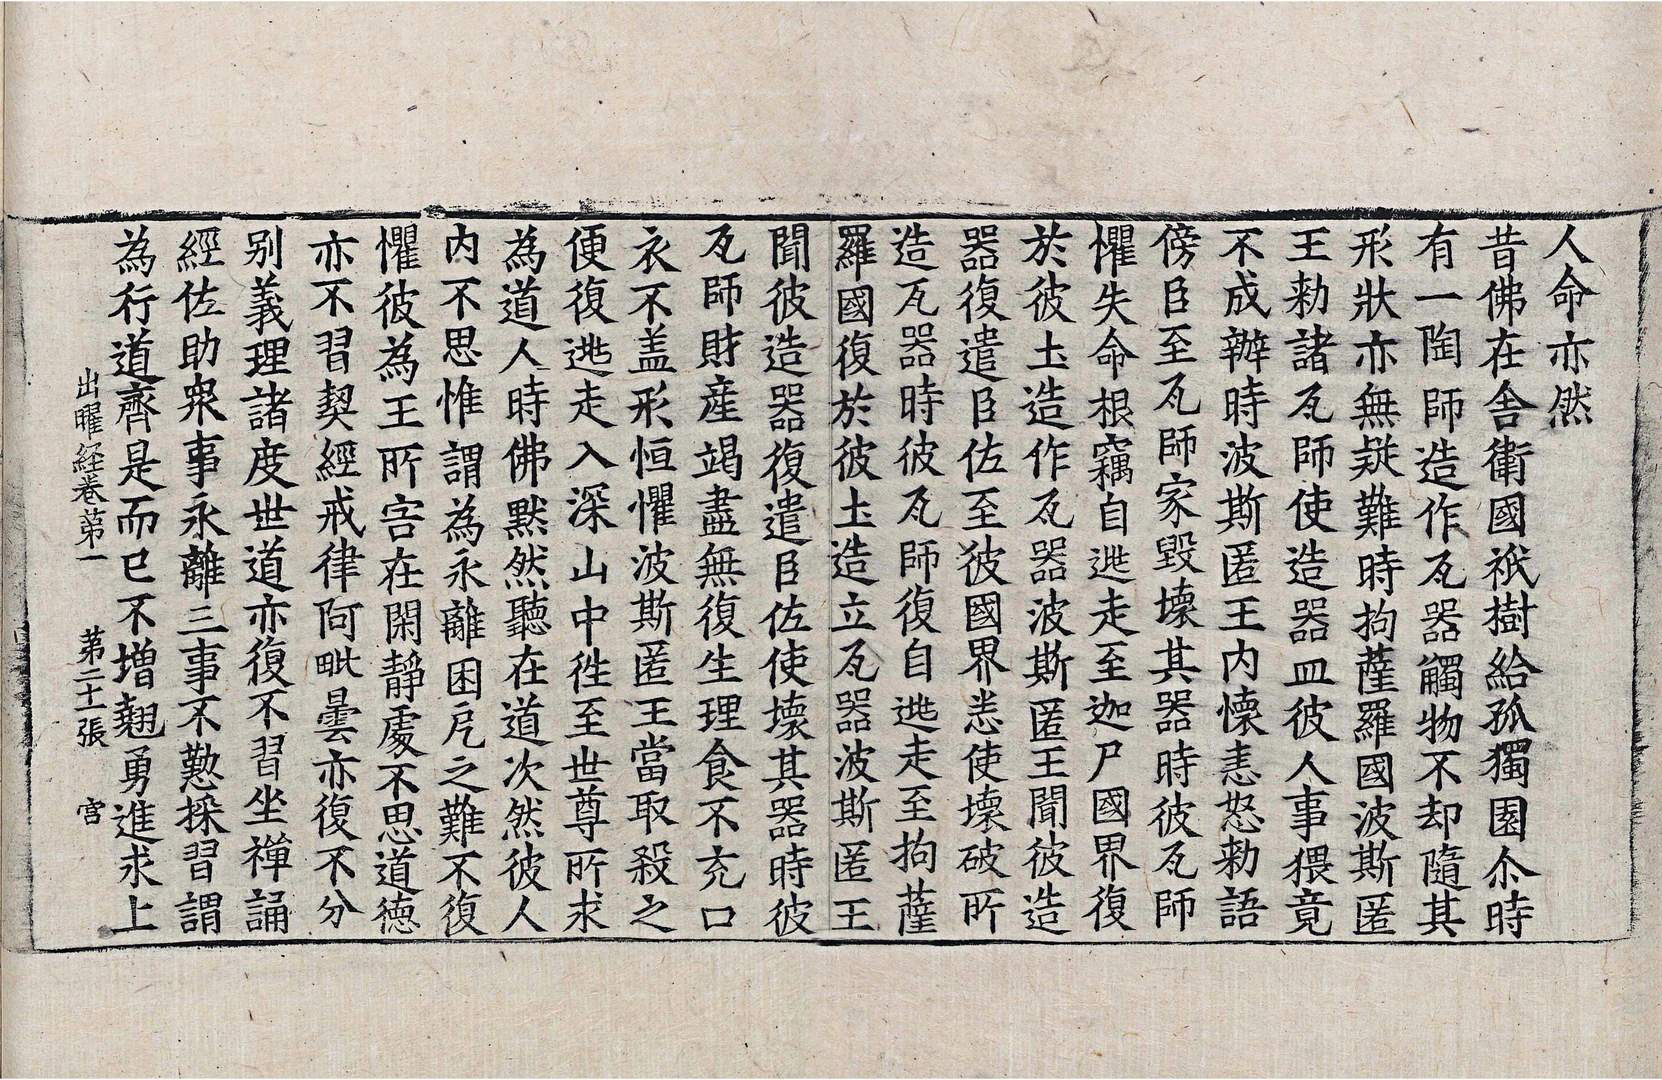 人命亦然
昔佛在舍衛國祇樹給孤獨園尒時
有一陶師造作瓦器觸物不却隨其
形狀亦無疑難時拘薩羅國波斯匿
王勑諸瓦師使造器皿彼人事猥竟
不成辦時波斯匿王内懷恚怒勑語
傍臣至瓦師家毀壞其器時彼瓦師
懼失命根竊自逃走至迦尸國界復
於彼土造作瓦器波斯匿王聞彼造
器復遣臣佐至彼國界悉使壞破所
造瓦器時彼瓦師復自逃走至拘薩
羅國復於彼土造立瓦器波斯匿王
聞彼造器復遣臣佐使壞其器時彼
瓦師財産竭盡無復生理食不充口
衣不盖形恒懼波斯匿王當取殺之
便復逃走入深山中徃至世尊所求
為道人時佛默然聽在道次然彼人
内不思惟謂為永離困戹之難不復
懼彼為王所害在閑靜處不思道德
亦不習契經戒律阿毗曇亦復不分
别義理諸度世道亦復不習坐禪誦
經佐助衆事永離三事不懃採習謂
為行道齊是而已不增翹勇進求上
出曜経卷苐一 苐二十張 宫